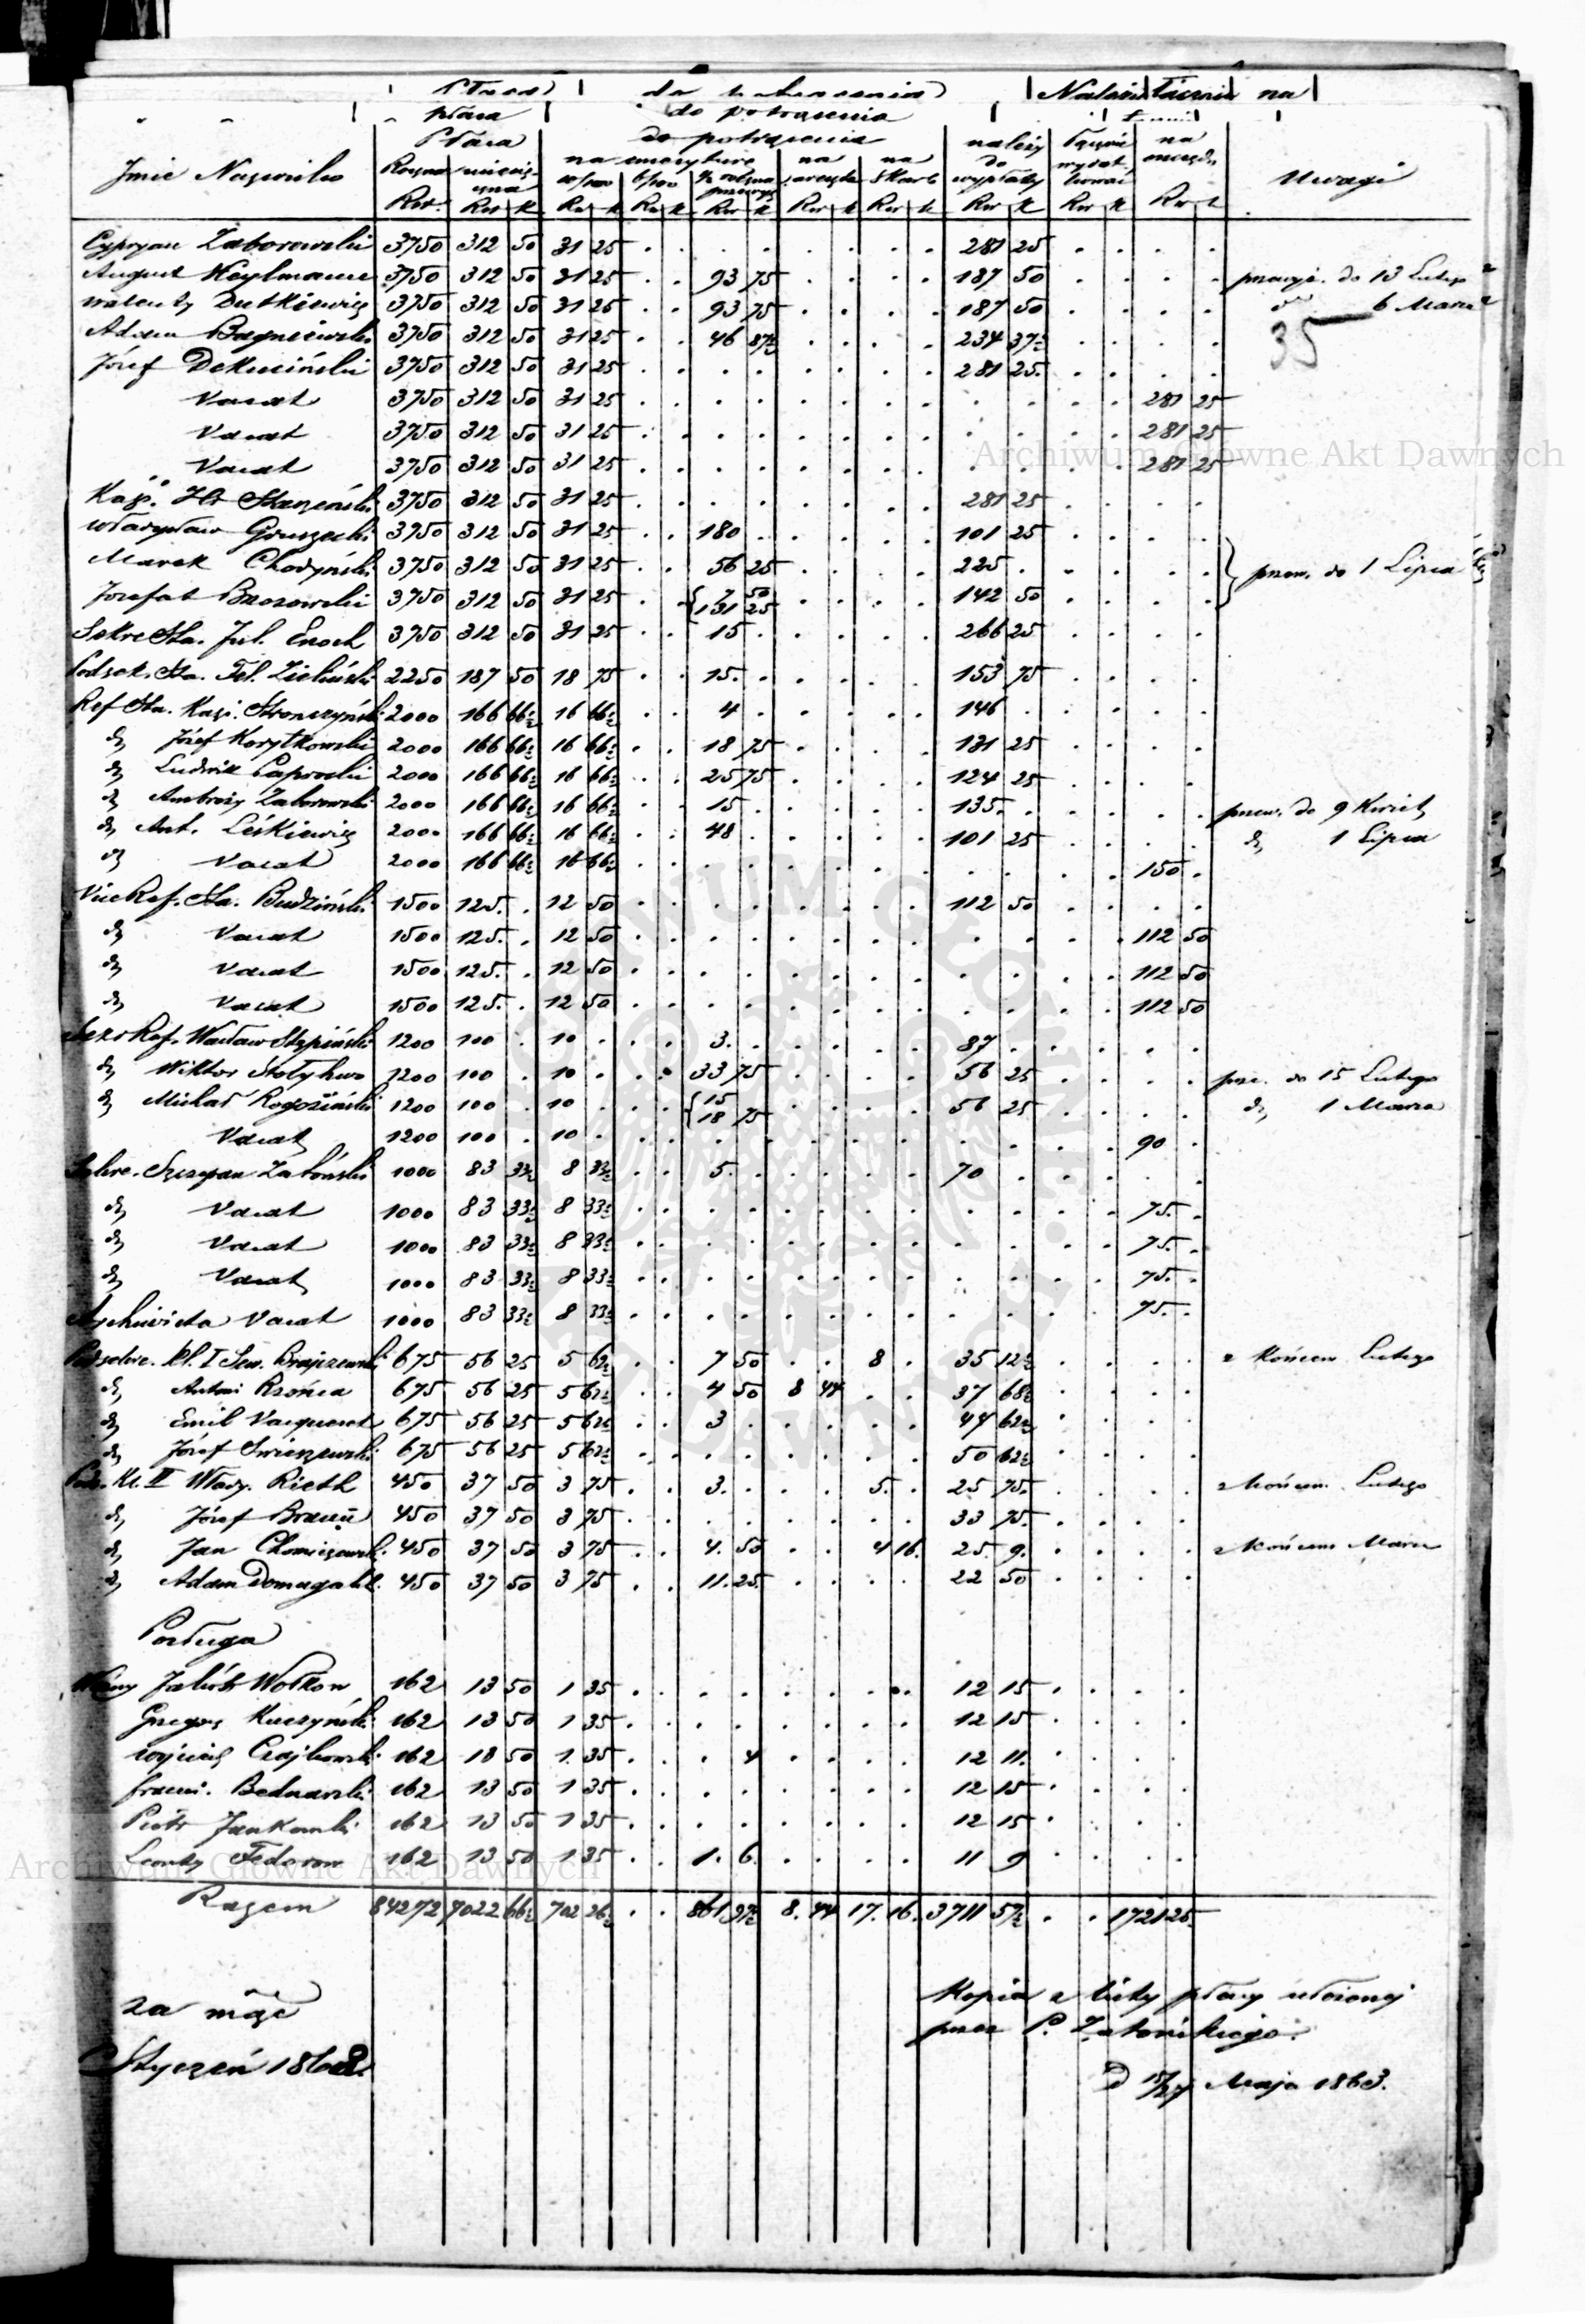 Płaca do potrącenia Należy łącznie na
płaca do potrącenia
Imie Nazwisko Płaca do potrącenia należy do wypłaty na oszczęd. Uwagi
Roczna miesięczna na emeryturę na areszta na Skarb
10/100 6/100
Rsr. Rsr k Rsr k Rsr k Rsr k Rsr k Rsr k Rsr k Rsr k Rsr k
Cypryan Zaborowski 3750 312 50 31 25 . . . . . . . . 281 25 . . . .
August Heylmann 3750 312 50 31 25 . . 93 75 . . . . 187 50 . . . . do 13 Lutego
Walenty Dutkiewicz 3750 312 50 31 25 . . 93 75 . . . . 187 50 . . . . 6 Marca
Adam Bagniewski 3750 312 50 31 25 . . 46 87½ . . . . 234 37½ . . . . 35
Józef Dekuciński 3750 312 50 31 25 . . . . . . . . 281 25 . . . .
Vacat 3750 312 50 31 25 . . . . . . . . . . . . 281 25
Vacat 3750 312 50 31 25 . . . . . . . . . . . . 281 25
Archiwum Główne Akt Dawnych
Vacat 3750 312 50 31 25 . . . . . . . . . . . . 281 25
Kaz. Hr 3750 312 50 31 25 . . . . . . . . 281 25 . . . .
Władysław Gruszecki 3750 312 50 31 25 . . 180 . . . . . 101 25 . . . .
Marek Chodyński 3750 312 50 31 25 . . 56 25 . . . . 225 . . . . . przew. do 1 Lipca
Jozefat Brzozowski 3750 312 50 31 25 . . { 7 50 . . . . 142 50 . . . .
131 25
Sekre Sta. Jul. Enoch 3750 312 50 31 25 . . 15 . . . . . 266 25 . . . .
Podsek. Sta. Fel. Zieliński 2250 187 50 18 75 . . 15 . . . . . 153 75 . . . .
Ref Sta. Kazi. Stronczyński 2000 166 66½ 16 66½ . . 4 . . . . . 146 . . . . .
d Józef Korytkowski 2000 166 66½ 16 66½ . . 18 75 . . . . 131 25 . . . .
d Ludwik Paprocki 2000 166 66½ 16 66½ . . 25 75 . . . . 124 25 . . . .
d Ambroży Zaborowski 2000 166 66½ 16 66½ . . 15 . . . . . 135 . . . . . przew. do 9 Kwiet
d Ant. Leśkiewicz 2000 166 66½ 16 66½ . . 48 . . . . . 101 25 . . . . d 1 Lipca
d Vacat 2000 166 66½ 16 66½ . . . . . . . . . . . . 150 .
Vice Ref. Sta. Budziński 1500 125 . 12 50 . . . . . . . . 112 50 . . . .
d Vacat 1500 125 . 12 50 . . . . . . . . . . . . 112 50
d Vacat 1500 125 . 12 50 . . . . . . . . . . . . 112 50
d Vacat 1500 125 . 12 50 . . . . . . . . . . . . 112 50
Ref. Wacław Stypiński 1200 100 . 10 . . . 3 . . . . . 87 . . . . .
d Wiktor Stołyhwo 1200 100 . 10 . . . 33 75 . . . . 56 25 . . . . prze. do 15 Lutego
d Michał Rogoziński 1200 100 . 10 . . . { 15 . . . . 56 25 . . . . d 1 Marca
18 75
Vacat 1200 100 . 10 . . . . . . . . . . . . . 90 .
Sekre. Szczepan Zatoński 1000 83 33½ 8 33½ . . 5 . . . . . 70 . . . . .
d Vacat 1000 83 33½ 8 33½ . . . . . . . . . . . . 75 .
d Vacat 1000 83 33½ 8 33½ . . . . . . . . . . . . 75 .
d Vacat 1000 83 33½ 8 33½ . . . . . . . . . . . . 75 .
Archiwista Vacat 1000 83 33½ 8 33½ . . . . . . . . . . . . 75 .
Podsekre. kl. I Sew. 675 56 25 5 62½ . . 7 50 . . 8 . 35 12½ . . . . z końcem Lutego
d Antoni Rzońca 675 56 25 5 62½ . . 4 50 8 44 . . 37 68½ . . . .
d Emil Vacqueret 675 56 25 5 62½ . . 3 . . . . . 44 62½ . . . .
d Józef 675 56 25 5 62½ . . . . . . . . 50 62½ . . . .
Pod. kl. II Włady. Rieth 450 37 50 3 75 . . 3 . . . 5 . 25 75 . . . . z końcem Lutego
d Józef Braun 450 37 50 3 75 . . . . . . . . 33 75 . . . .
d Jan 450 37 50 3 75 . . 4 50 . . 4 16 25 9 . . . . z końcem Marca
d Adam Domagal 450 37 50 3 75 . . 11 25 . . . . 22 50 . . . .
Posługa
Woźny Jakób Wołkow 162 13 50 1 35 . . . . . . . . 12 15 . . . .
Grzegorz Kuczyński 162 13 50 1 35 . . . . . . . . 12 15 . . . .
Wojciech Czajkowski 162 13 50 1 35 . . . 4 . . . . 12 11 . . . .
Franci. Bednarski 162 13 50 1 35 . . . . . . . . 12 15 . . . .
Piotr Jankowski 162 13 50 1 35 . . . . . . . . 12 15 . . . .
Leonty Fedorow 162 13 50 1 35 . . 1 6 . . . . 11 9 . . . .
Archiwum Główne Akt Dawnych
Razem 84272 7022 66½ 702 26½ . . 861 97½ 8 44 17 16 3711 57½ . . 1721 25
za msc
Styczeń 1862
Kopia z listy płacy ułożonej
przez P. Zatońskiego.
D 15/27 Maja 1863.